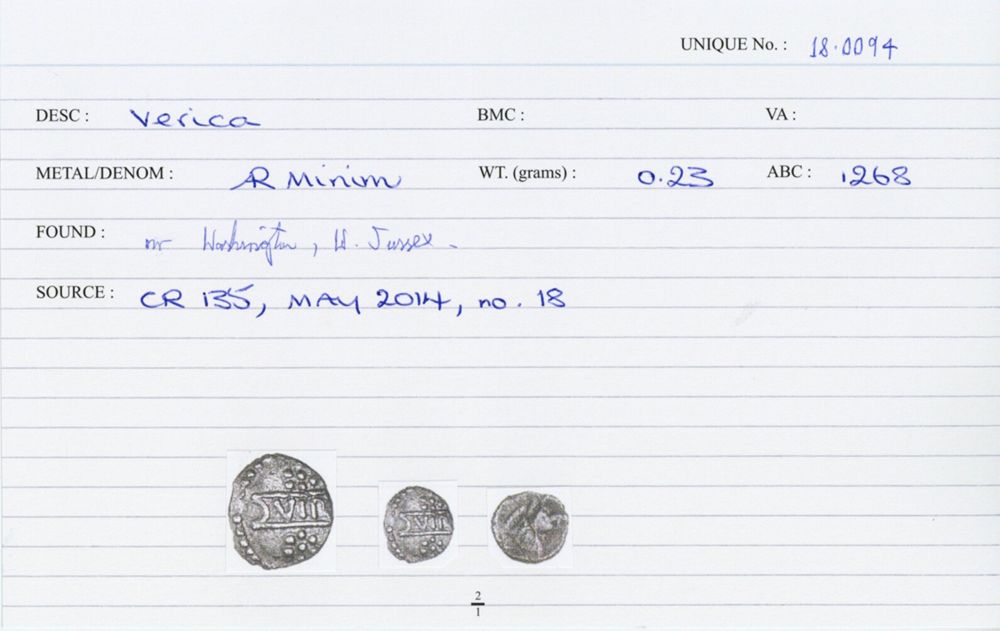 UNIQUE No. : 18.0094
DESC : Verica BMC : VA :
METAL/DENOM : AR Minim WT. (grams) : 0.23 ABC : 1268
FOUND : nr Washington, W. Sussex.
SOURCE : CR 135, MAY 2014, no. 18
SVII
SVII
2
1